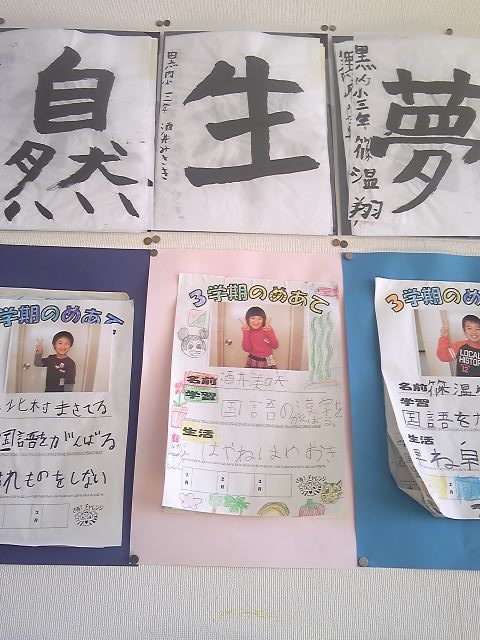 自然
生
黒内小三年 酒井みさき
夢
黒内小三年 篠温翔
3学期のめあて
北村まさてる
国語をがんばる
れものをしない
3月
3学期のめあて
名前 酒井
学習 国語の漢字をがんばる。
生活 はやねはやおき
1月 2月 3月
3学期のめ
名前 篠温
学習 国語をが
生活